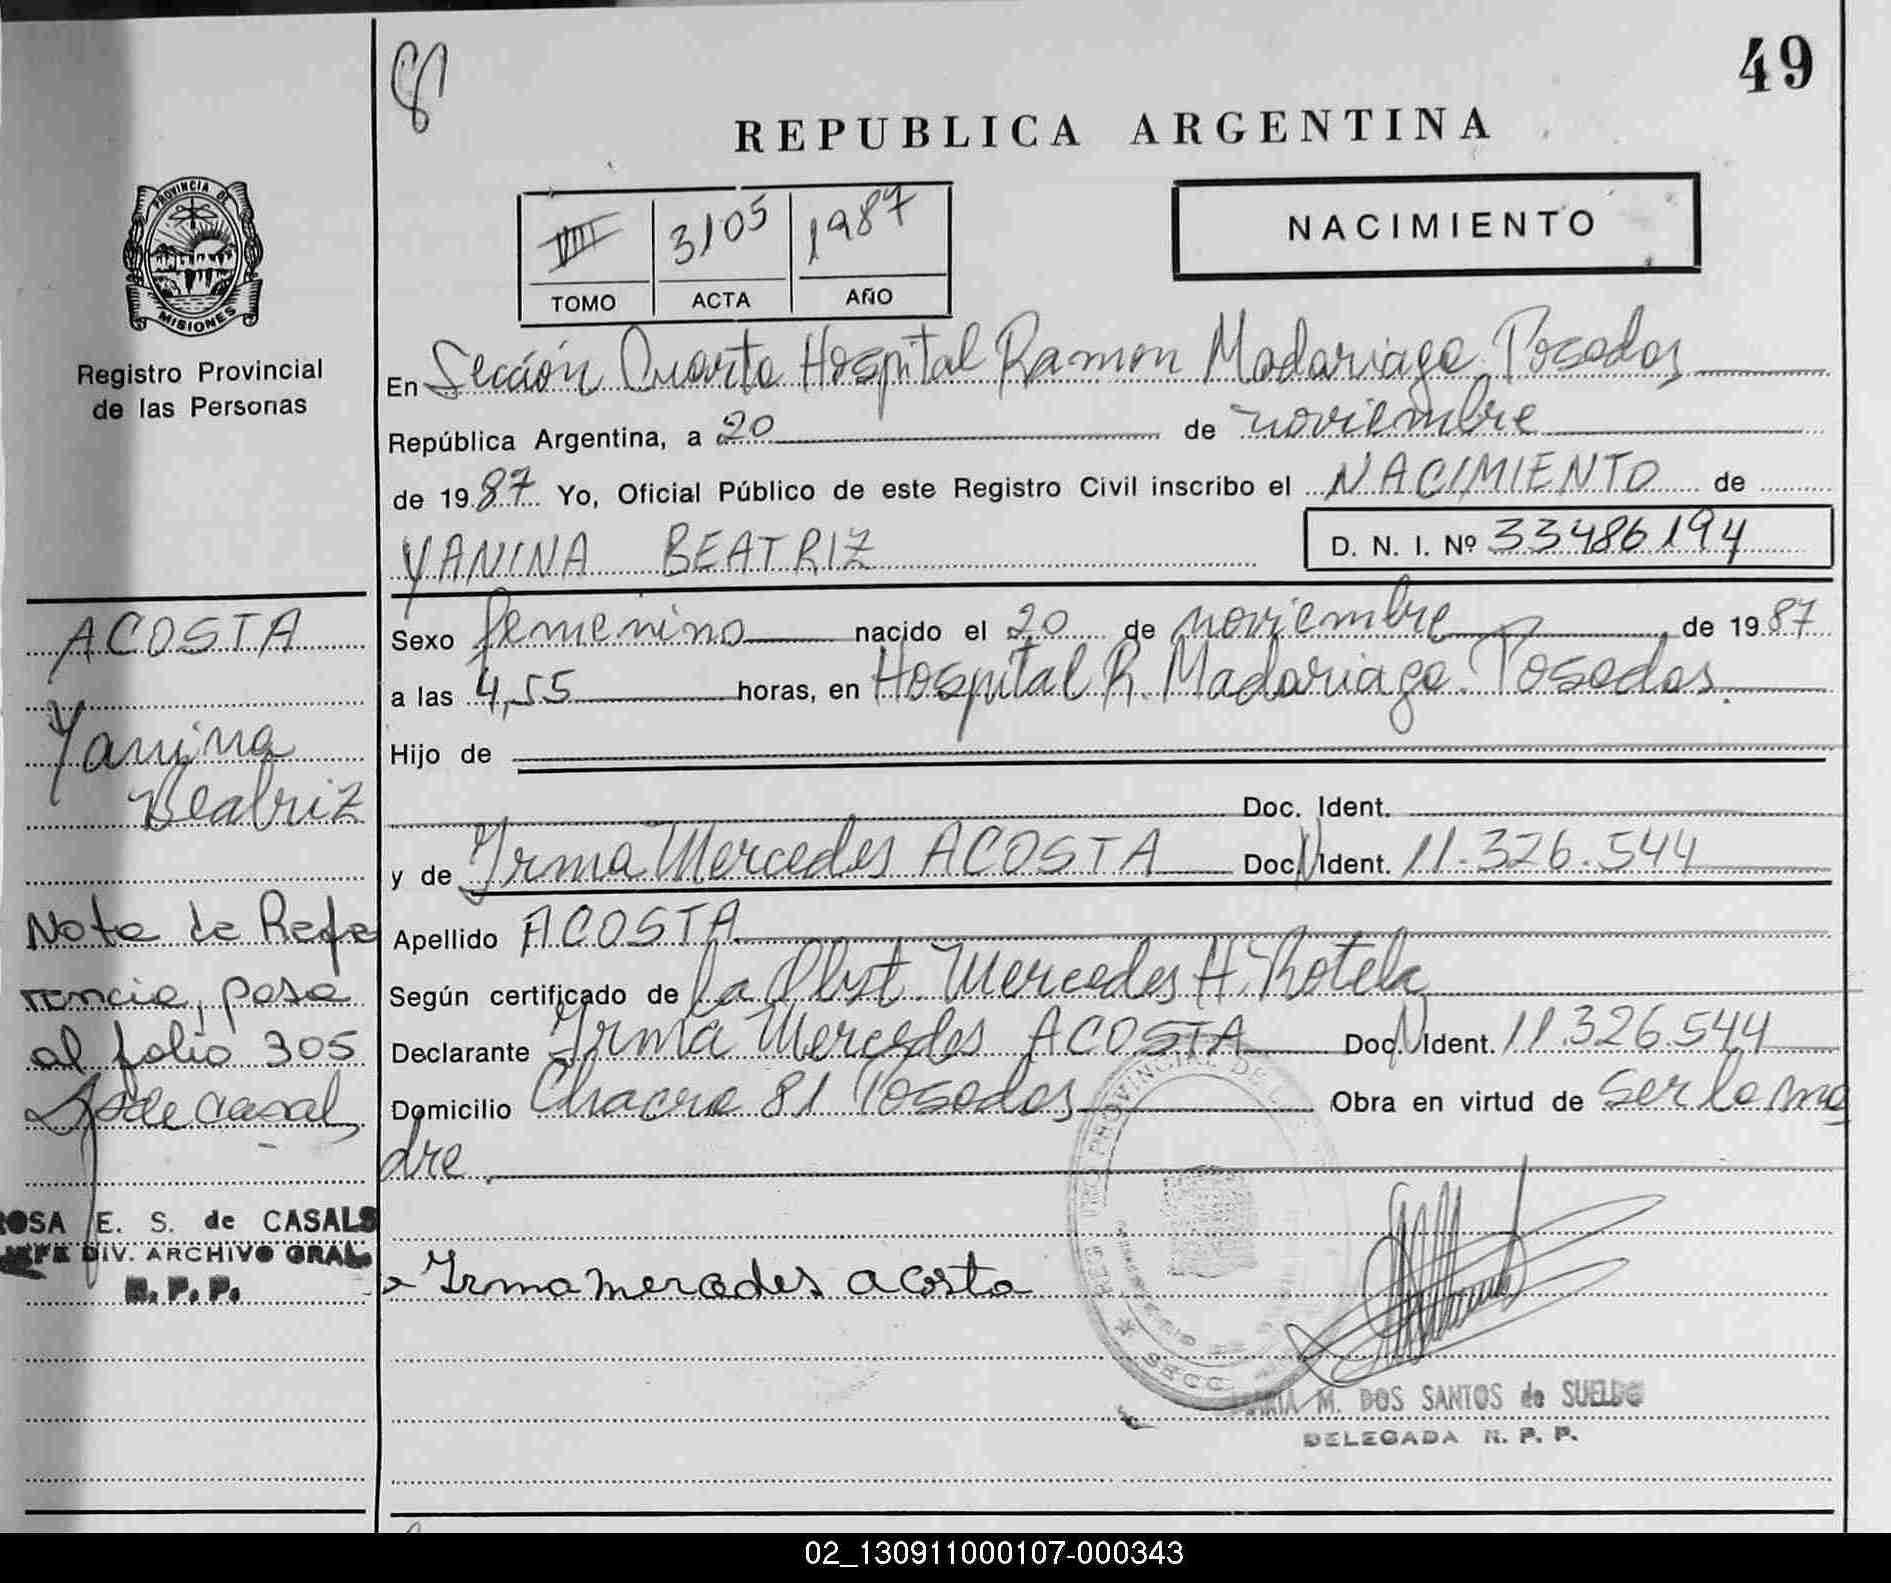 49
REPUBLICA ARGENTINA
NACIMIENTO
VIII 3105 1987
TOMO ACTA AÑO
PROVINCIA DE
MISIONES
Registro Provincial
de las Personas
En Sección Cuarta Hospital Ramon Madariaga. Posadas
República Argentina, a 20 de noviembre
de 1987 Yo, Oficial Público de este Registro Civil inscribo el NACIMIENTO de
YANINA BEATRIZ D. N. I. Nº 33486194
Sexo femenino nacido el 20 de noviembre de 1987
a las 4,55 horas, en Hospital R. Madariaga. Posadas.
Hijo de
Doc. Ident.
y de Irma Mercedes ACOSTA Doc. N Ident. 11.326.544
Apellido ACOSTA
Según certificado de la Obst. Mercedes H. Rotela
Declarante Irma Mercedes ACOSTA Doc. N Ident. 11.326.544
Domicilio Chacra 81 Posadas Obra en virtud de ser la ma
dre
Irma mercedes acosta
MARIA M. DOS SANTOS de SUELDO
DELEGADA R. P. P.
ACOSTA
Yanina
Beatriz
Nota de Refe
rencia, pasa
al folio 305
S. de Casal
ROSA E. S. de CASALS
JEFE DIV. ARCHIVO GRAL.
R. P. P.
02_130911000107-000343